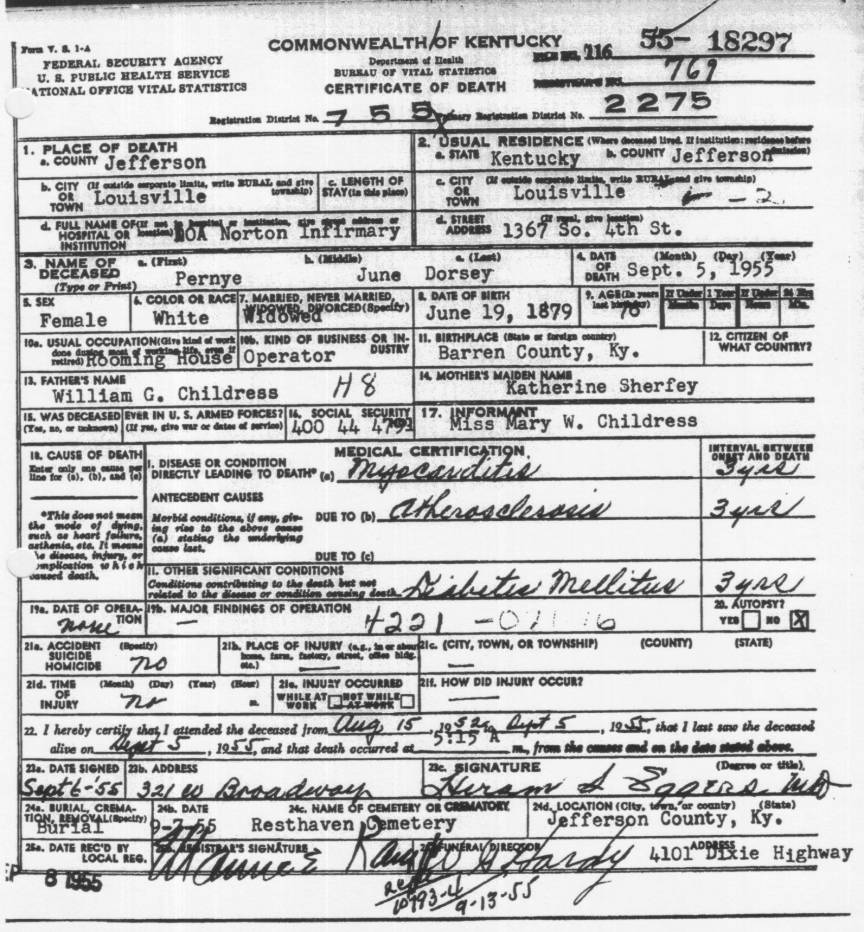 Form V. S. 1-A
COMMONWEALTH OF KENTUCKY
55- 18297
FEDERAL SECURITY AGENCY
U. S. PUBLIC HEALTH SERVICE
NATIONAL OFFICE VITAL STATISTICS
Department of Health
BUREAU OF VITAL STATISTICS
CERTIFICATE OF DEATH
FILE NO. 116
769
REGISTRAR'S NO. 2275
Registration District No. 755 Primary Registration District No.
1. PLACE OF DEATH
a. COUNTY Jefferson
2. USUAL RESIDENCE (Where deceased lived. If institution: residence before admission)
a. STATE Kentucky b. COUNTY Jefferson
b. CITY (If outside corporate limits, write RURAL and give township)
OR TOWN Louisville
c. LENGTH OF STAY (in this place)
c. CITY (If outside corporate limits, write RURAL and give township)
OR TOWN Louisville - 2
d. FULL NAME OF (If not in hospital or institution, give street address or location)
HOSPITAL OR INSTITUTION DOA Norton Infirmary
d. STREET ADDRESS (If rural, give location)
1367 So. 4th St.
3. NAME OF DECEASED (Type or Print)
a. (First) b. (Middle) c. (Last)
Pernye June Dorsey
4. DATE OF DEATH (Month) (Day) (Year)
Sept. 5, 1955
5. SEX
Female
6. COLOR OR RACE
White
7. MARRIED, NEVER MARRIED, WIDOWED, DIVORCED (Specify)
Widowed
8. DATE OF BIRTH
June 19, 1879
9. AGE (In years last birthday)
76
If Under 1 Year
Months Days
If Under 24 Hrs
Hours Min.
10a. USUAL OCCUPATION (Give kind of work done during most of working life, even if retired)
Rooming House
10b. KIND OF BUSINESS OR INDUSTRY
Operator
11. BIRTHPLACE (State or foreign country)
Barren County, Ky.
12. CITIZEN OF WHAT COUNTRY?
13. FATHER'S NAME
William G. Childress H8
14. MOTHER'S MAIDEN NAME
Katherine Sherfey
15. WAS DECEASED EVER IN U. S. ARMED FORCES?
(Yes, no, or unknown) (If yes, give war or dates of service)
16. SOCIAL SECURITY
400 44 4793
17. INFORMANT
Miss Mary W. Childress
18. CAUSE OF DEATH
Enter only one cause per line for (a), (b), and (c)
*This does not mean the mode of dying, such as heart failure, asthenia, etc. It means the disease, injury, or complication which caused death.
MEDICAL CERTIFICATION
INTERVAL BETWEEN ONSET AND DEATH
I. DISEASE OR CONDITION
DIRECTLY LEADING TO DEATH* (a) Myocarditis 3 yrs
ANTECEDENT CAUSES
Morbid conditions, if any, giving rise to the above cause (a) stating the underlying cause last.
DUE TO (b) Atherosclerosis 3 yrs
DUE TO (c)
II. OTHER SIGNIFICANT CONDITIONS
Conditions contributing to the death but not related to the disease or condition causing death.
Diabetis Mellitus 3 yrs
19a. DATE OF OPERATION
none
19b. MAJOR FINDINGS OF OPERATION
- 4221 -
20. AUTOPSY?
YES NO X
21a. ACCIDENT SUICIDE HOMICIDE (Specify)
no
21b. PLACE OF INJURY (e.g., in or about home, farm, factory, street, office bldg. etc.)
21c. (CITY, TOWN, OR TOWNSHIP) (COUNTY) (STATE)
21d. TIME OF INJURY (Month) (Day) (Year) (Hour) m.
no
21e. INJURY OCCURRED
WHILE AT WORK NOT WHILE AT WORK
21f. HOW DID INJURY OCCUR?
22. I hereby certify that I attended the deceased from Aug 15, 1952 to Sept 5, 1955, that I last saw the deceased
alive on Sept 5, 1955, and that death occurred at 5:15 A m., from the causes and on the date stated above.
23a. DATE SIGNED
Sept 6-55
23b. ADDRESS
321 W Broadway
23c. SIGNATURE (Degree or title)
Hiram S Eggers MD
24a. BURIAL, CREMATION, REMOVAL (Specify)
Burial
24b. DATE
9-7-55
24c. NAME OF CEMETERY OR CREMATORY
Resthaven Cemetery
24d. LOCATION (City, town, or county) (State)
Jefferson County, Ky.
25a. DATE REC'D BY LOCAL REG.
8 1955
REGISTRAR'S SIGNATURE
FUNERAL DIRECTOR
Hardy
ADDRESS
4101 Dixie Highway
9-13-55